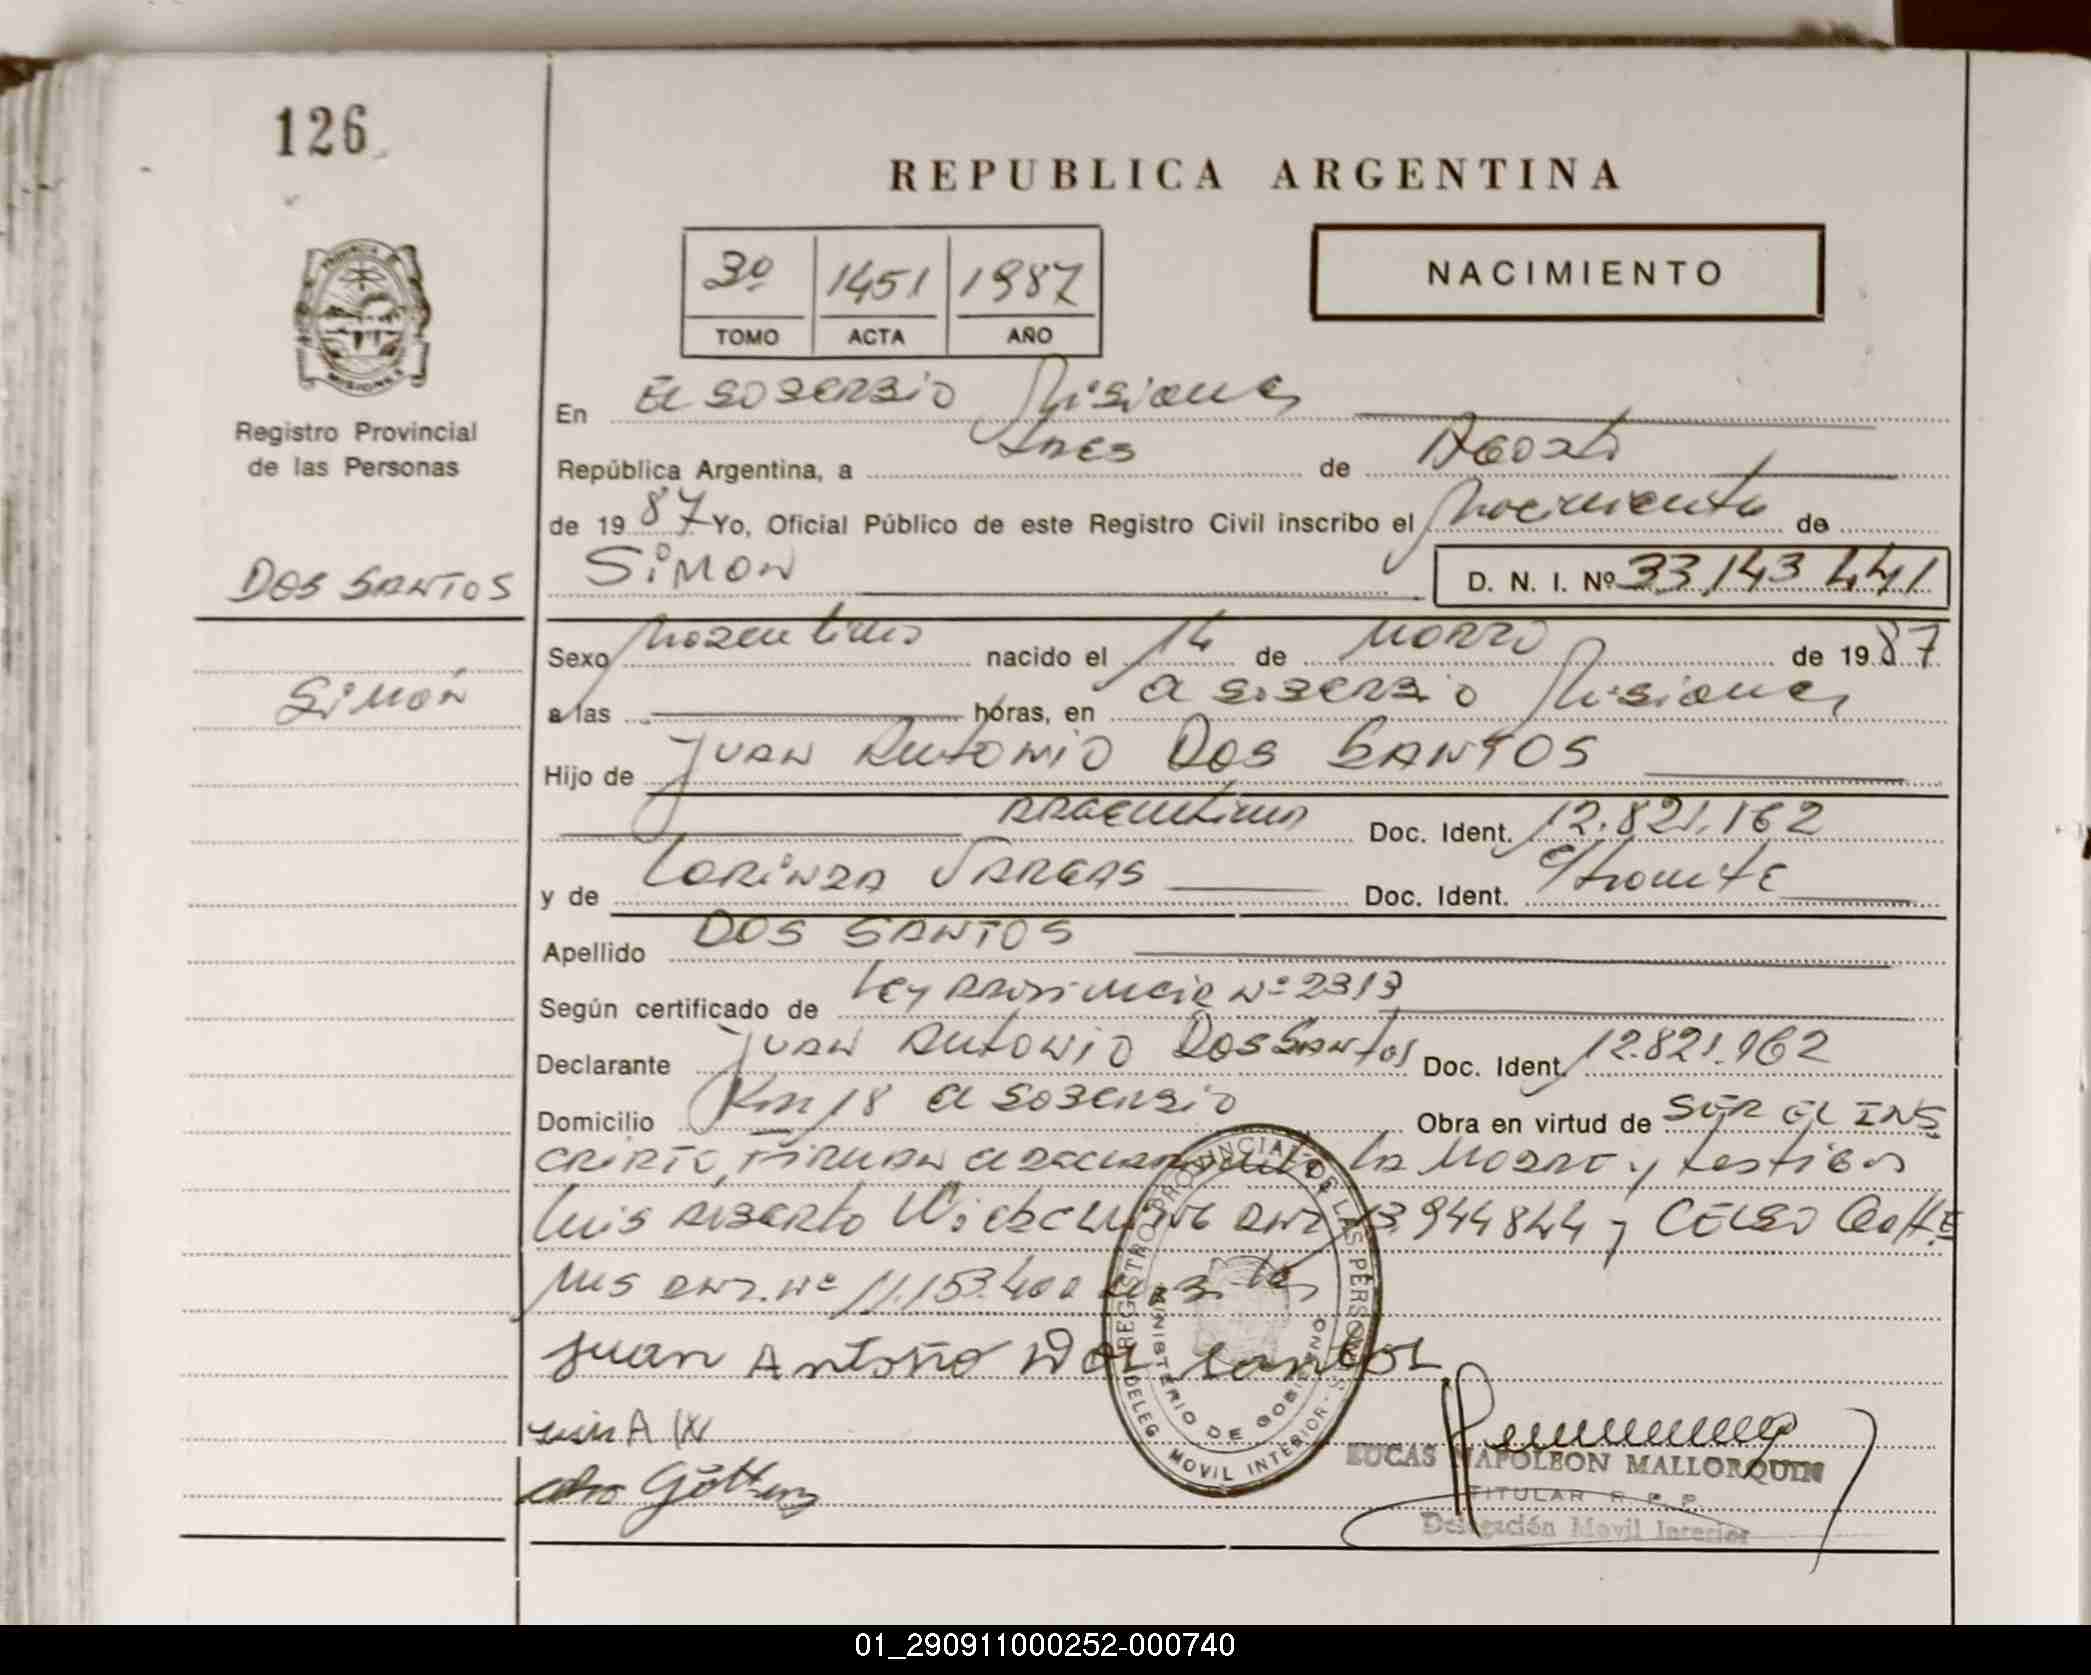 126
REPUBLICA ARGENTINA
3º 1451 1987
TOMO ACTA AÑO
NACIMIENTO
MISIONES
Registro Provincial
de las Personas
En El Soberbio Misiones
República Argentina, a tres de Agosto
de 1987 Yo, Oficial Público de este Registro Civil inscribo el Nacimiento de
DOS SANTOS
Simon
D. N. I. Nº 33.143.441
Sexo Masculino nacido el 14 de Marzo de 1987
Simón
a las horas, en El Soberbio Misiones
Hijo de Juan Antonio Dos Santos
Argentino Doc. Ident. 12.821.162
y de Lorinza Vargas Doc. Ident.
Apellido DOS SANTOS
Según certificado de Ley Provincia Nº 2313
Declarante Juan Antonio Dos Santos Doc. Ident. 12.821.162
Domicilio Km 18 El Soberbio Obra en virtud de SER EL INS
CRIPTO, FIRMAN el declarante la Madre y testigos
Luis Alberto DNI 13944844 y CELSO
DNI. Nº 11.153.400
Juan Antonio Dos Santos
Luis A W
REGISTRO PROVINCIAL DE LAS PERSONAS
MINISTERIO DE GOBIERNO
DELEG MOVIL INTERIOR
LUCAS NAPOLEON MALLORQUIN
TITULAR R. P. P.
Delegación Movil Interior
01_290911000252-000740